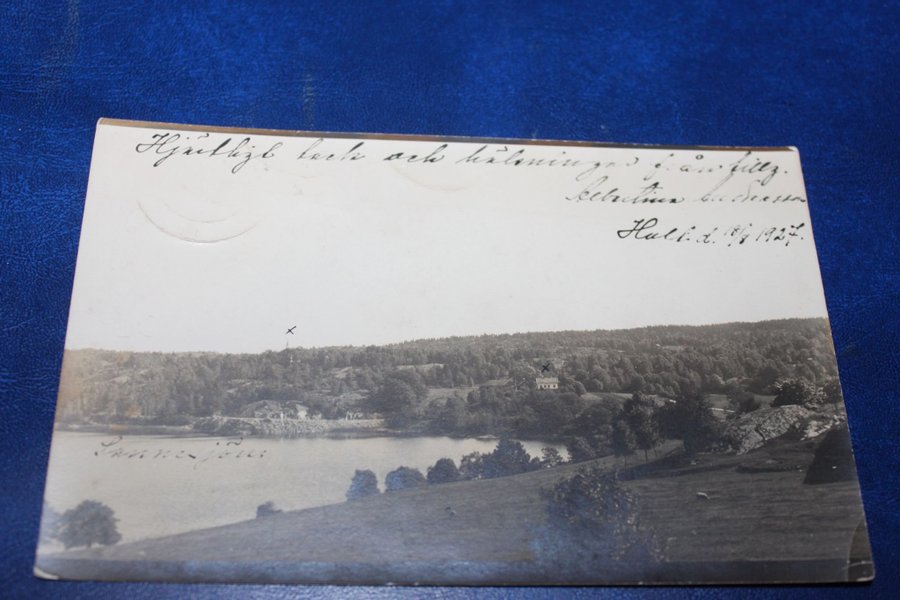 Hjärtligt tack och hälsningar från tillg.
Albertina Andersson
Hult d. 18/9 1927.
x
x
Sannesjön